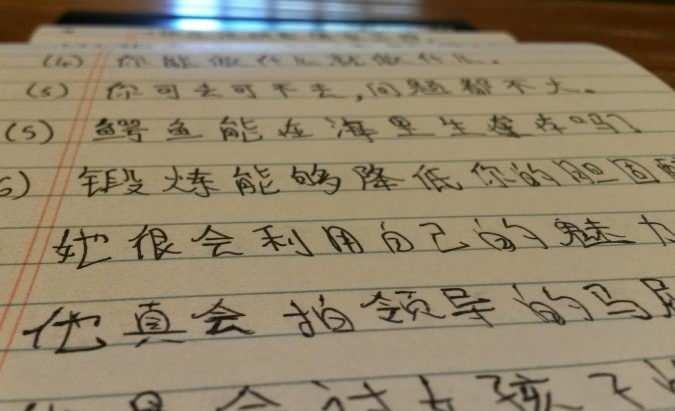 (6) 你能做什么就做什么。
(5) 你可去可不去,问题都不大。
(5) 鳄鱼能在海里生存吗
6) 锻炼能够降低你的胆固
她很会利用自己的魅力
他真会拍领导的马屁
会讨女孩子